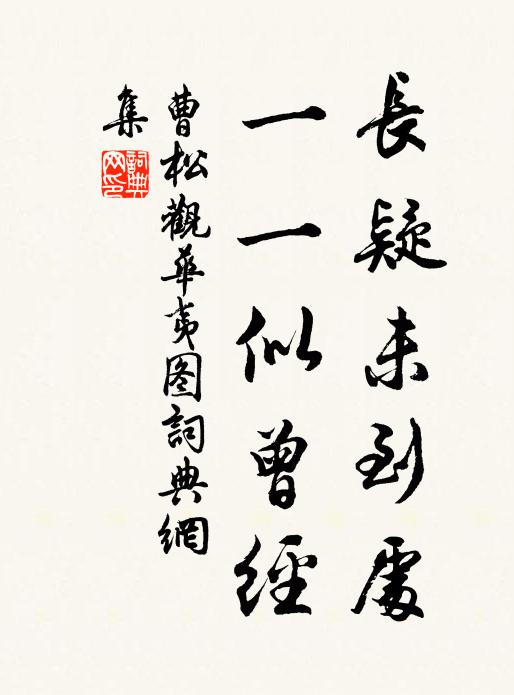 長疑未到處
一一似曾經
曹松觀華夷图詞典網
集
詞典
网印